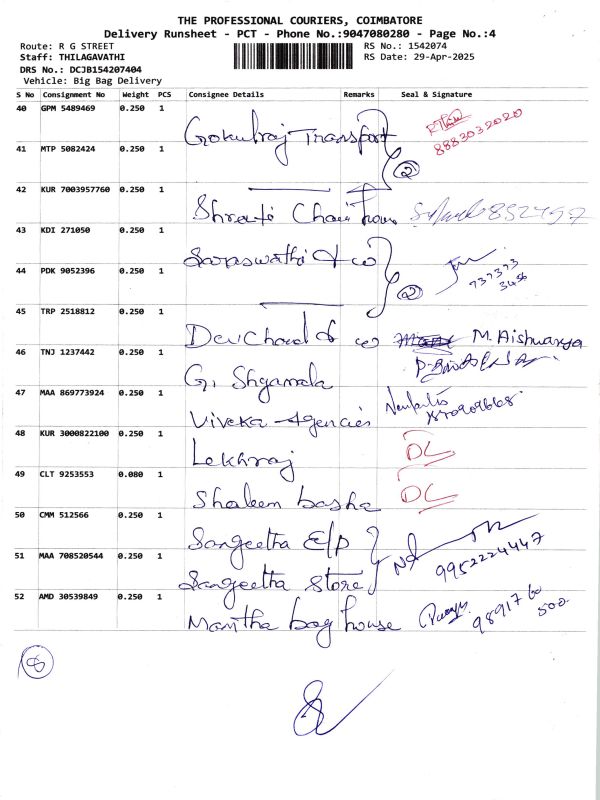 THE PROFESSIONAL COURIERS, COIMBATORE
Delivery Runsheet - PCT - Phone No.:9047080280 - Page No.:4
Route: R G STREET RS No.: 1542074
Staff: THILAGAVATHI RS Date: 29-Apr-2025
DRS No.: DCJB154207404
Vehicle: Big Bag Delivery
S No Consignment No Weight PCS Consignee Details Remarks Seal & Signature
40 GPM 5489469 0.250 1 Gokulraj Transport 8883032020
41 MTP 5082424 0.250 1 2
42 KUR 7003957760 0.250 1 Shreeji Chair house
43 KDI 271050 0.250 1 Saraswathi & co
44 PDK 9052396 0.250 1 2 737373
45 TRP 2518812 0.250 1 Devichand & co M. Aishwarya
46 TNJ 1237442 0.250 1 G. Shyamala
47 MAA 869773924 0.250 1 Viveka Agencies
48 KUR 3000822100 0.250 1 Lekhraj DL
49 CLT 9253553 0.080 1 Shaleem basha DL
50 CMM 512566 0.250 1 Sangeetha E/P
51 MAA 708520544 0.250 1 Sangeetha store 9952224447
52 AMD 30539849 0.250 1 Mantha bag house 98917 60 500
8